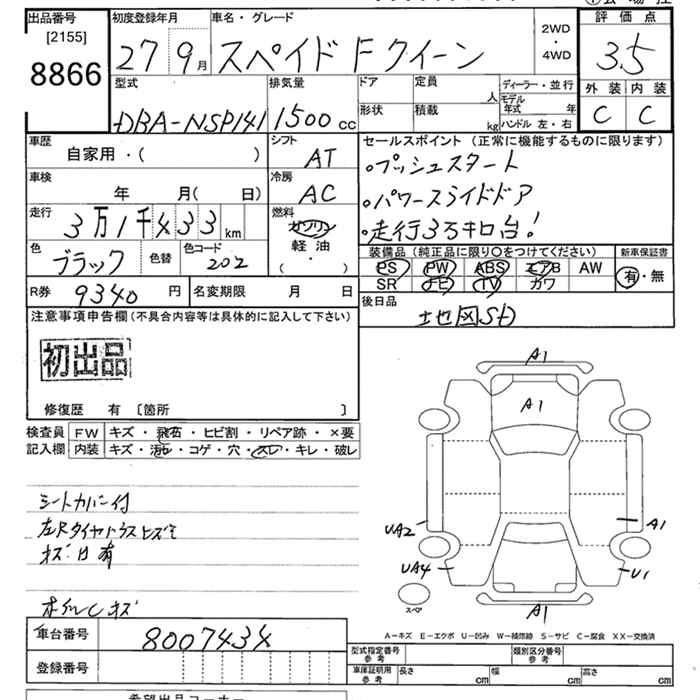 出品番号
[2155]
8866
初度登録年月
27 9月
車名・グレード
スペイド Fクイーン
2WD
・
4WD
評価点
3.5
外装 内装
C C
型式
DBA-NSP141
排気量
1500cc
ドア
形状
定員
人
積載
kg
ディーラー・並行
モデル年式 年
ハンドル 左・右
車歴
自家用・( )
シフト
AT
車検
年 月( 日)
冷房
AC
走行
3万1千433km
燃料
ガソリン
軽油
( ・ )
色
ブラック
色替
色コード
202
セールスポイント(正常に機能するものに限ります)
。プッシュスタート
。パワースライドドア
。走行3万キロ台!
装備品(純正品に限り〇をつけてください)
PS PW ABS エアB AW
SR ナビ TV カワ
新車保証書
有・無
R券
9340円
名変期限 月 日
後日品
地図SD
注意事項申告欄(不具合内容等は具体的に記入して下さい)
初出品
修復歴 有 〔箇所 〕
検査員
記入欄
FW キズ・飛石・ヒビ割・リペア跡・×要
内装 キズ・汚レ・コゲ・穴・スレ・キレ・破レ
シートカバー付
キズ凹有
ホイルCキズ
A1
A1
UA2
A1
UA4
U1
スペア
A1
A−キズ E−エクボ U−凹み W−補修跡 S−サビ C−腐食 XX−交換済
車台番号
8007434
登録番号
型式指定番号
参考
類別区分番号
参考
車庫証明用
参考
長さ cm
幅 cm
高さ cm
希望出品コーナー